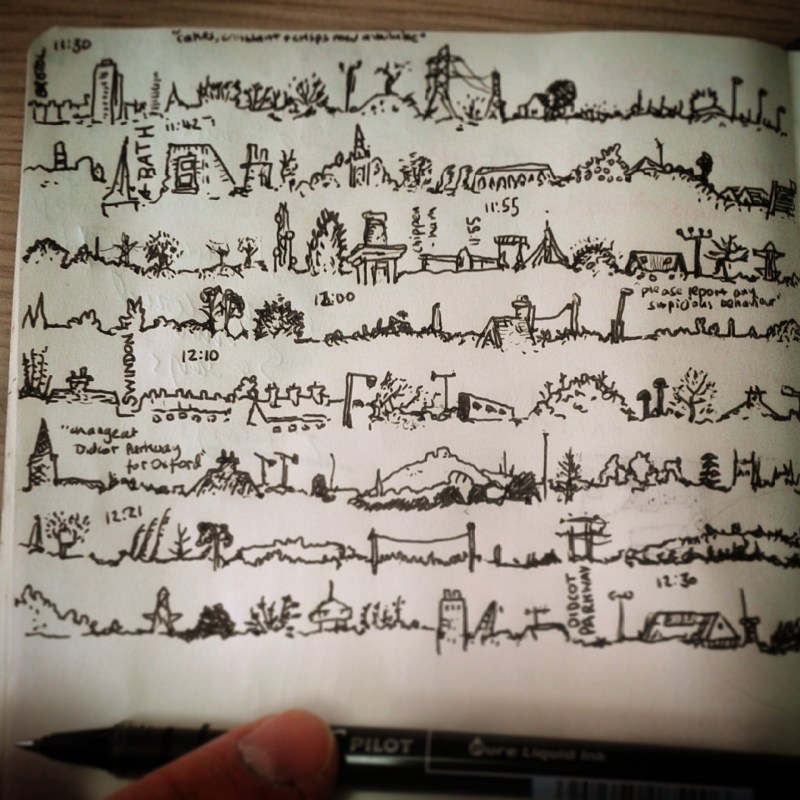 11:30
"cakes, croissant & crisps now available"
BATH
11:42
Chippen
-ham
11:55
11:55
12:00
"please report any
suspicious behaviour"
SWINDON
12:10
"change at
Didcot Parkway
for Oxford"
12:21
DIDCOT
PARKWAY
12:30
PILOT
Pure Liquid Ink